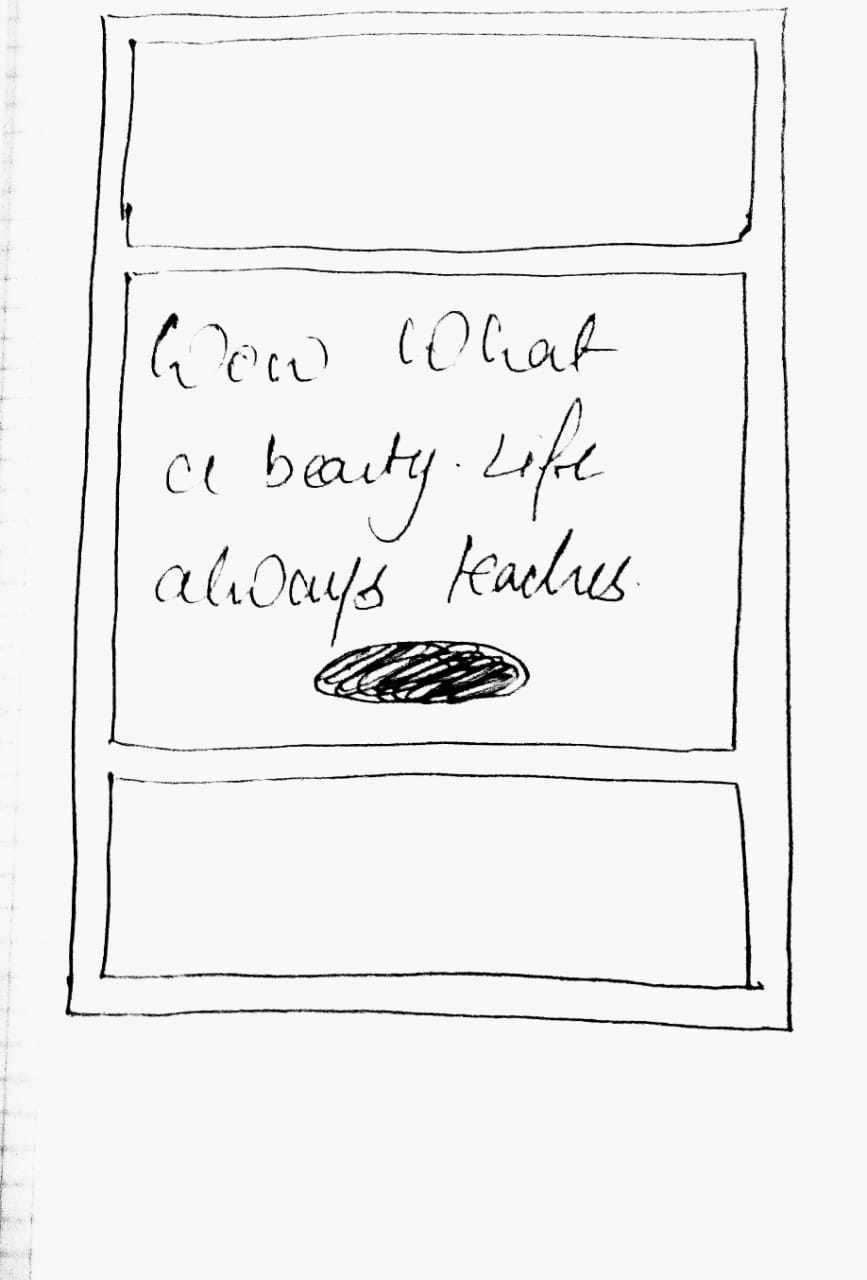 Wow What
a beauty. Life
always teaches.